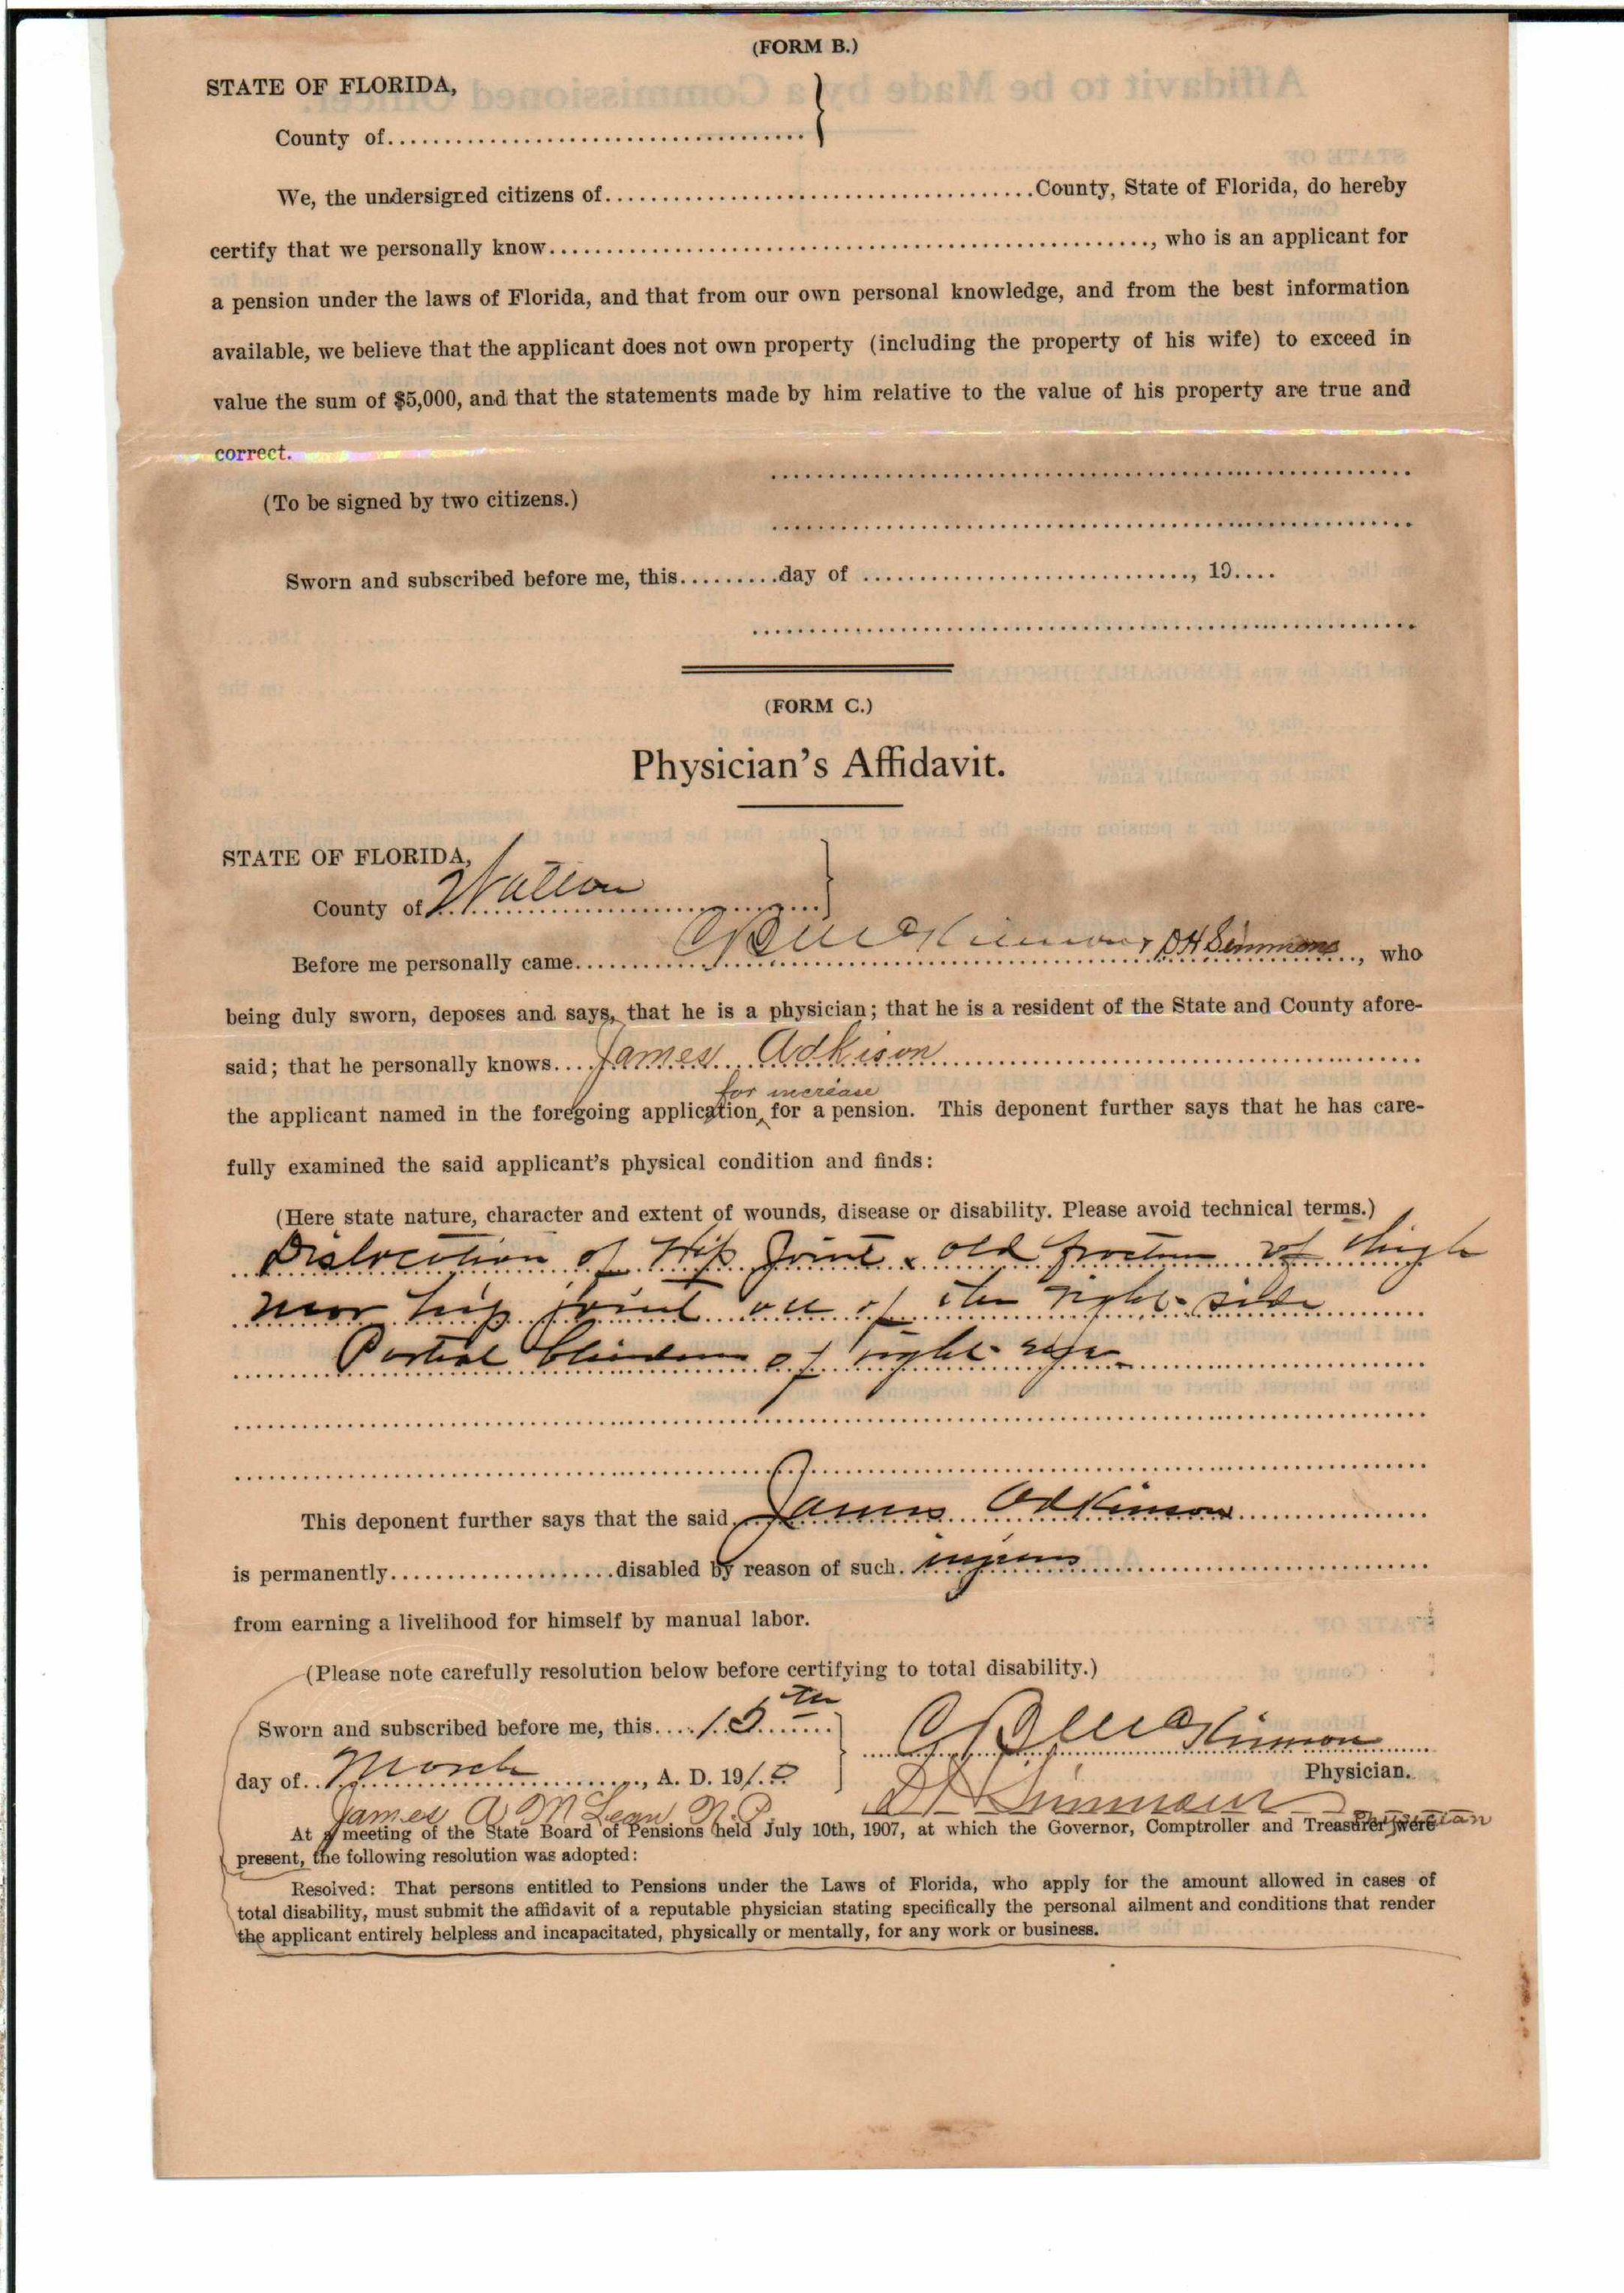 (FORM B.)
STATE OF FLORIDA,
County of....................................
We, the undersigned citizens of....................................County, State of Florida, do hereby
certify that we personally know...................................................., who is an applicant for
a pension under the laws of Florida, and that from our own personal knowledge, and from the best information
available, we believe that the applicant does not own property (including the property of his wife) to exceed in
value the sum of $5,000, and that the statements made by him relative to the value of his property are true and
correct.
(To be signed by two citizens.)
Sworn and subscribed before me, this.........day of ............................, 19....
(FORM C.)
Physician's Affidavit.
STATE OF FLORIDA,
County of Walton
Before me personally came C B McKinnon & D H Simmons, who
being duly sworn, deposes and says, that he is a physician; that he is a resident of the State and County afore-
said; that he personally knows James Adkison
for increase
the applicant named in the foregoing application for a pension. This deponent further says that he has care-
fully examined the said applicant's physical condition and finds:
(Here state nature, character and extent of wounds, disease or disability. Please avoid technical terms.)
Dislocation of Hip Joint & old fracture of thigh
near hip joint all of the right side
Partial blindness of right eye
This deponent further says that the said James Adkinson
is permanently....................disabled by reason of such injuries
from earning a livelihood for himself by manual labor.
(Please note carefully resolution below before certifying to total disability.)
Sworn and subscribed before me, this 15th
C B McKinnon
day of March, A. D. 1910
Physician.
James A McLean N.P.
D H Simmons Physician
At a meeting of the State Board of Pensions held July 10th, 1907, at which the Governor, Comptroller and Treasurer were
present, the following resolution was adopted:
Resolved: That persons entitled to Pensions under the Laws of Florida, who apply for the amount allowed in cases of
total disability, must submit the affidavit of a reputable physician stating specifically the personal ailment and conditions that render
the applicant entirely helpless and incapacitated, physically or mentally, for any work or business.